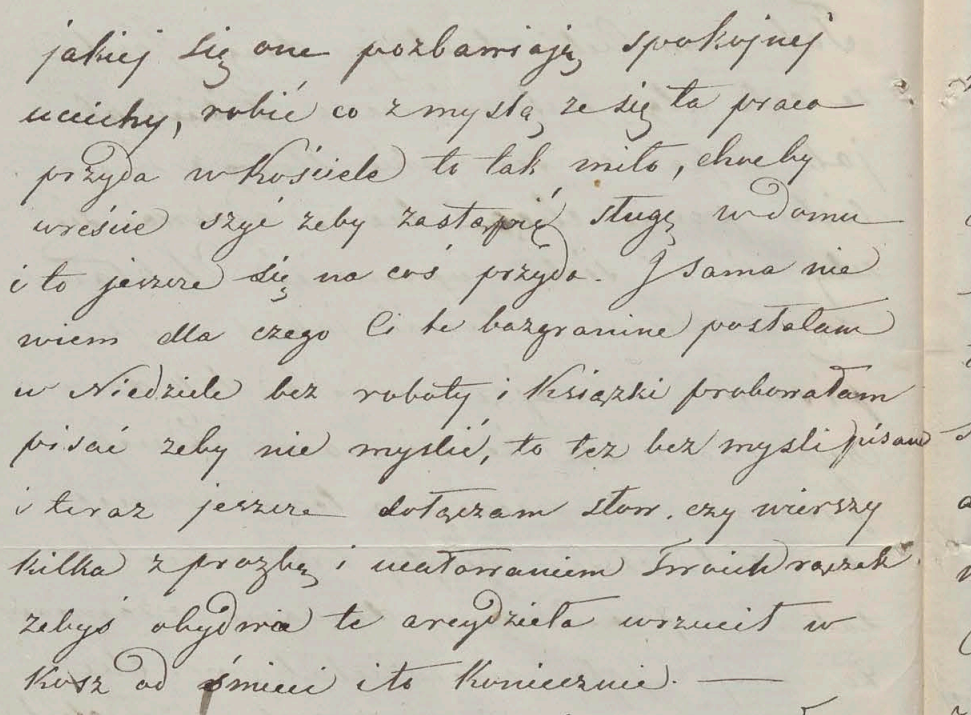 jakiej się one pozbawiają spokojnej
uciechy, robić co z myslą ze się ta praca
przyda w Kościele to tak miło, choćby
wreście szyć zeby zastąpić sługę w domu
i to jeszcze się na coś przyda. I sama nie
wiem dla czego Ci te bazgranine posłałam
w Niedziele bez roboty i Ksiązki probowałam
pisać zeby nie myslić, to tez bez mysli pisane
i teraz jeszcze dołączam słow. czy wierszy
kilka z prozbą i ucałowaniem Twoich rączek
zebyś obydwa te arcydzieła wrzucił w
Kosz od śmieci i to Koniecznie. —